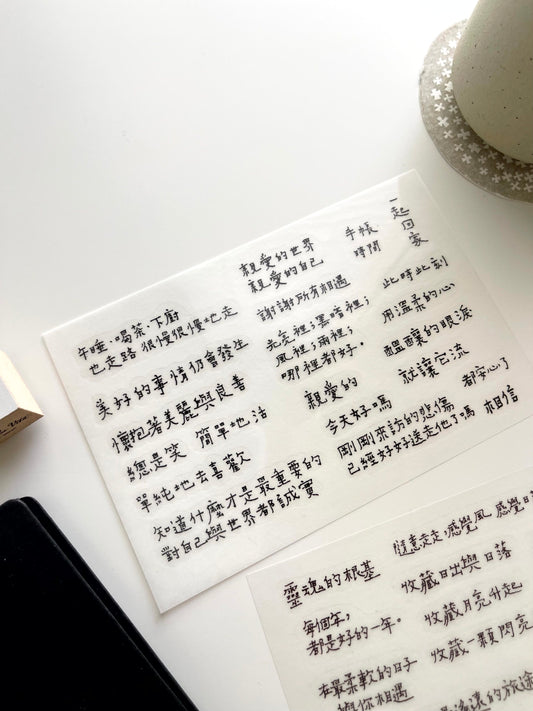 一起
回家
手帳
時間
親愛的世界
親愛的自己
此時此刻
謝謝所有相遇
午睡·喝茶·下廚
也走路 很慢很慢慢地走
用溫柔的心
在亮裡;黑暗裡;
風裡;雨裡;
哪裡都好。
美好的事情仍會發生
醞釀的眼淚
就讓它流
懷抱著美麗與良善
親愛的
今天好嗎
都安心了
總是笑 簡單地活
剛剛來訪的悲傷
已經好好送走他了嗎
相信
單純地去喜歡
知道什麼才是最重要的
對自己與世界都誠實
隨意走走,感覺風 感覺日
靈魂的根基
收藏日出與日落
每個年,
都是好的一年。
收藏月亮升起
收藏一顆閃亮
在最柔軟的日子
與你相遇
遙遠的旅途